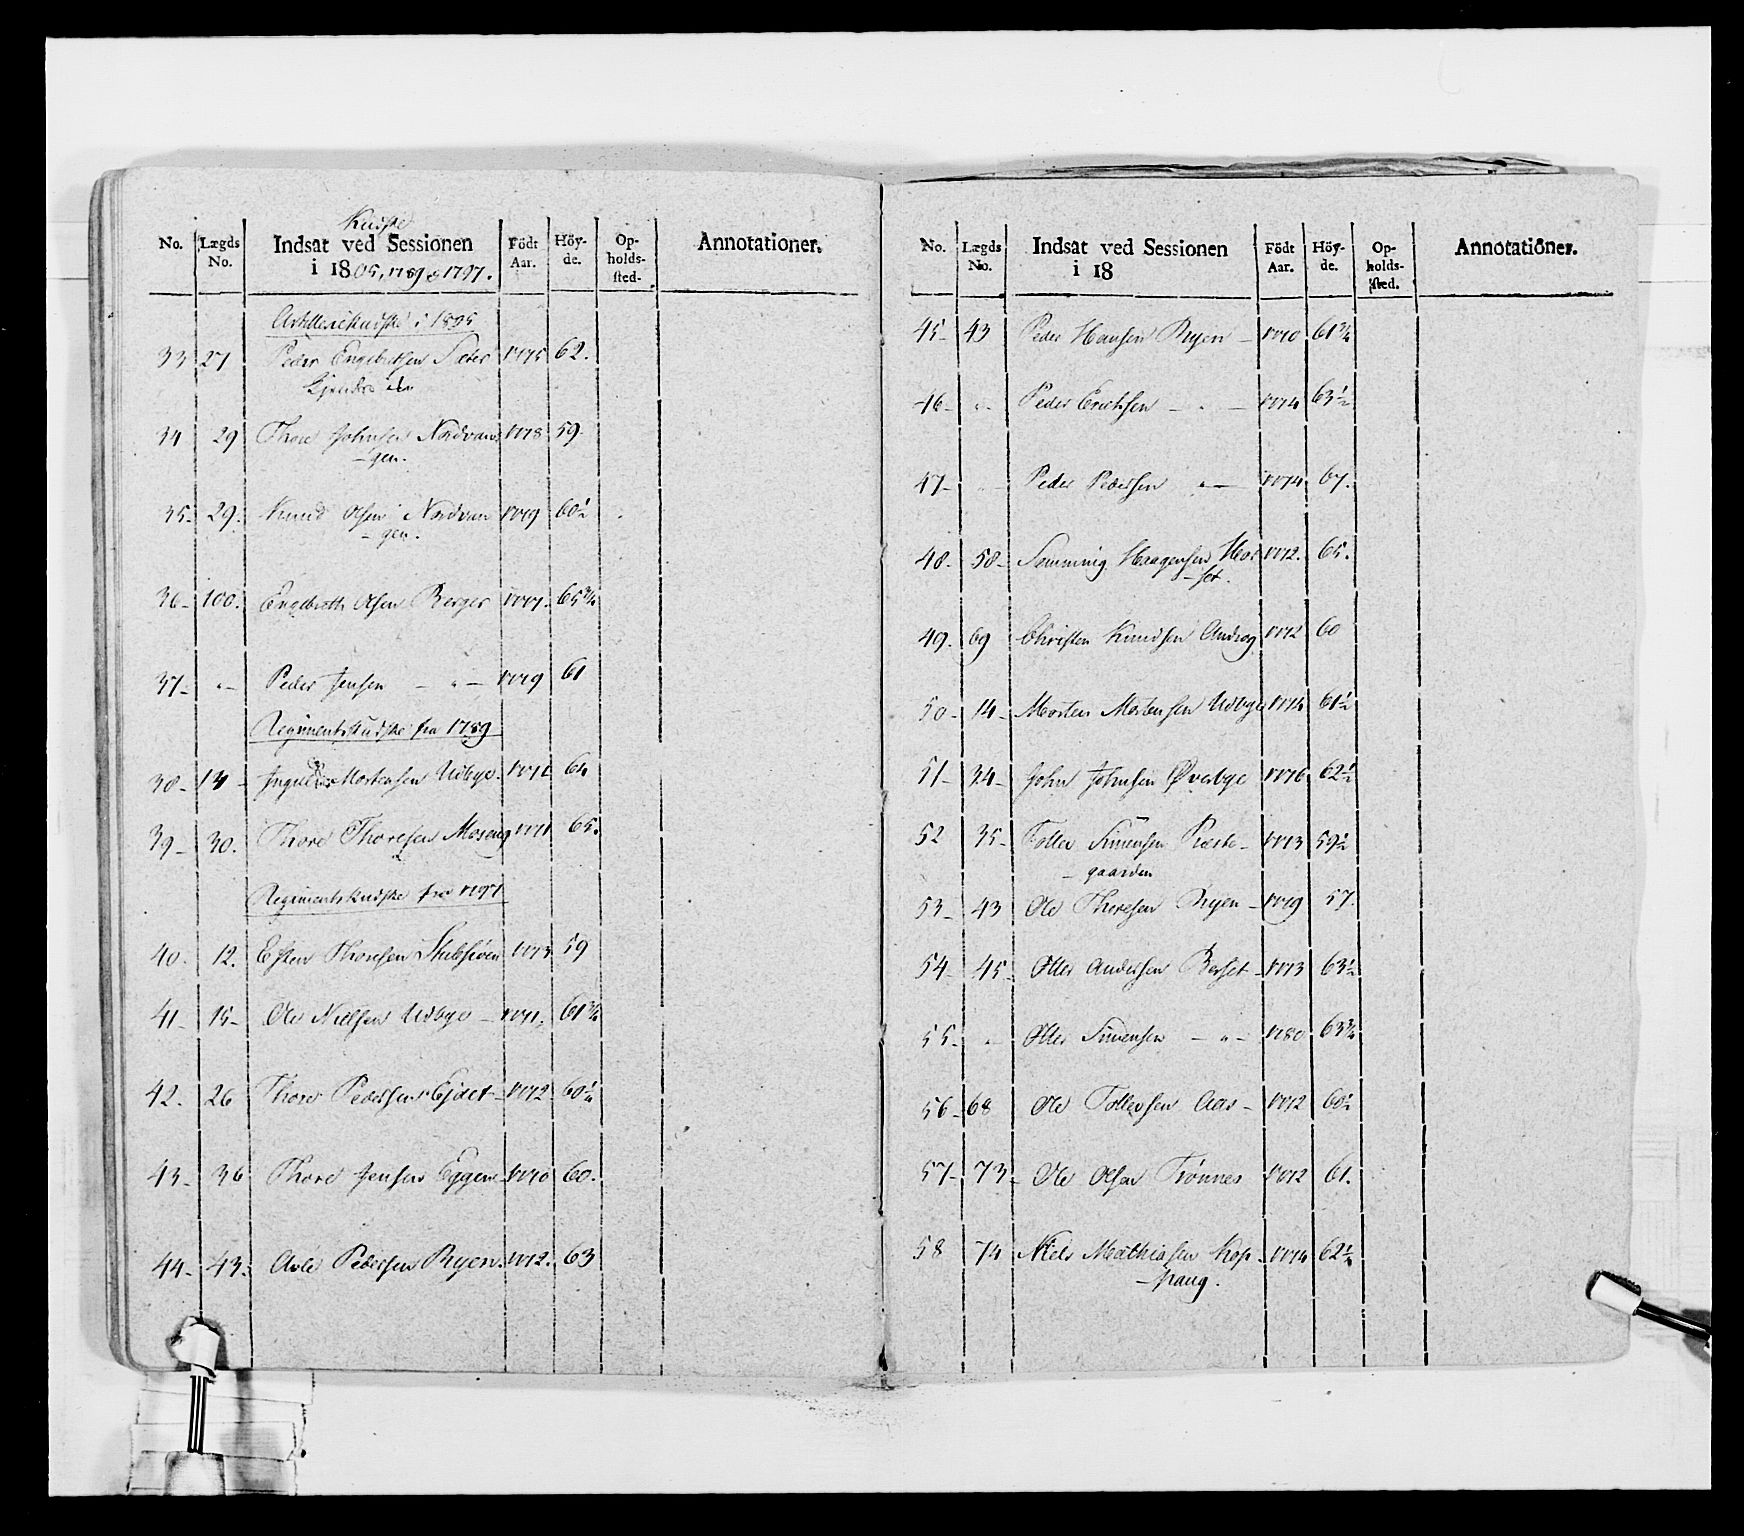 Kudske
No. Lægds No. Indsat ved Sessionen i 1805, 1789 og 1797. Födt Aar. Höyde. Opholdssted. Annotationer.
Artilleriekudske i 1805
33 27 Peder Engebretsen Sæter 1775 62.
34 29 Thore Johnsen Nordvan 1778 59.
-gen.
35. 29. Knud Olsen Nordvan 1779 60½
-gen.
36- 100. Engebreth Olsen Berger 1777. 65¾
37- "- Peder Jensen - " - 1779 61
Regimentskudske fra 1789
38- 14- Mortensen Udbye- 64
39- 30. Thore Thoresen Moseng 1771 65.
Regimentskudske fra 1797
40. 12. Esten Thoresen 1773 59
41- 15- Ole Nielsen Udbye - 1771. 61¾
42. 26 Thore Pedersen 1772 60¼
43- 36 Thore Jensen Eggen 1770 60.
44- 43. Pedersen Ryen. 1772. 63
No. Lægds No. Indsat ved Sessionen i 18 Födt Aar. Höyde. Opholdssted. Annotationer.
45- 43 Peder Hansen Ryen - 1770 61¾
46- "- Peder Erichsen - " - 1774 63½
47- "- Peder Pedersen " - 1774 67.
48- 58- Semming Haagensen Hor 1772. 65.
-set.
49. 69 Christen Knudsen 1772 60
50- 14- Morten Mortensen Udbye 1774 61½
51- 34- John Johnsen Øverbye 1776 62½
52 35- Tollev Simensen Præste- 1773 59½
-gaarden
53- 43 Ole Thoresen Ryen - 1779 57.
54- 45- Otter Andersen Berset - 1773 63½
55- "- Otter Simensen - " - 1780 63¾
56- 68 Ole Tollevsen Aas - 1772 60½
57- 73- Ole Olsen Trønnes 1772 61.
58 74 Niels Mathiasen Kop- 1774 62½
-pang.